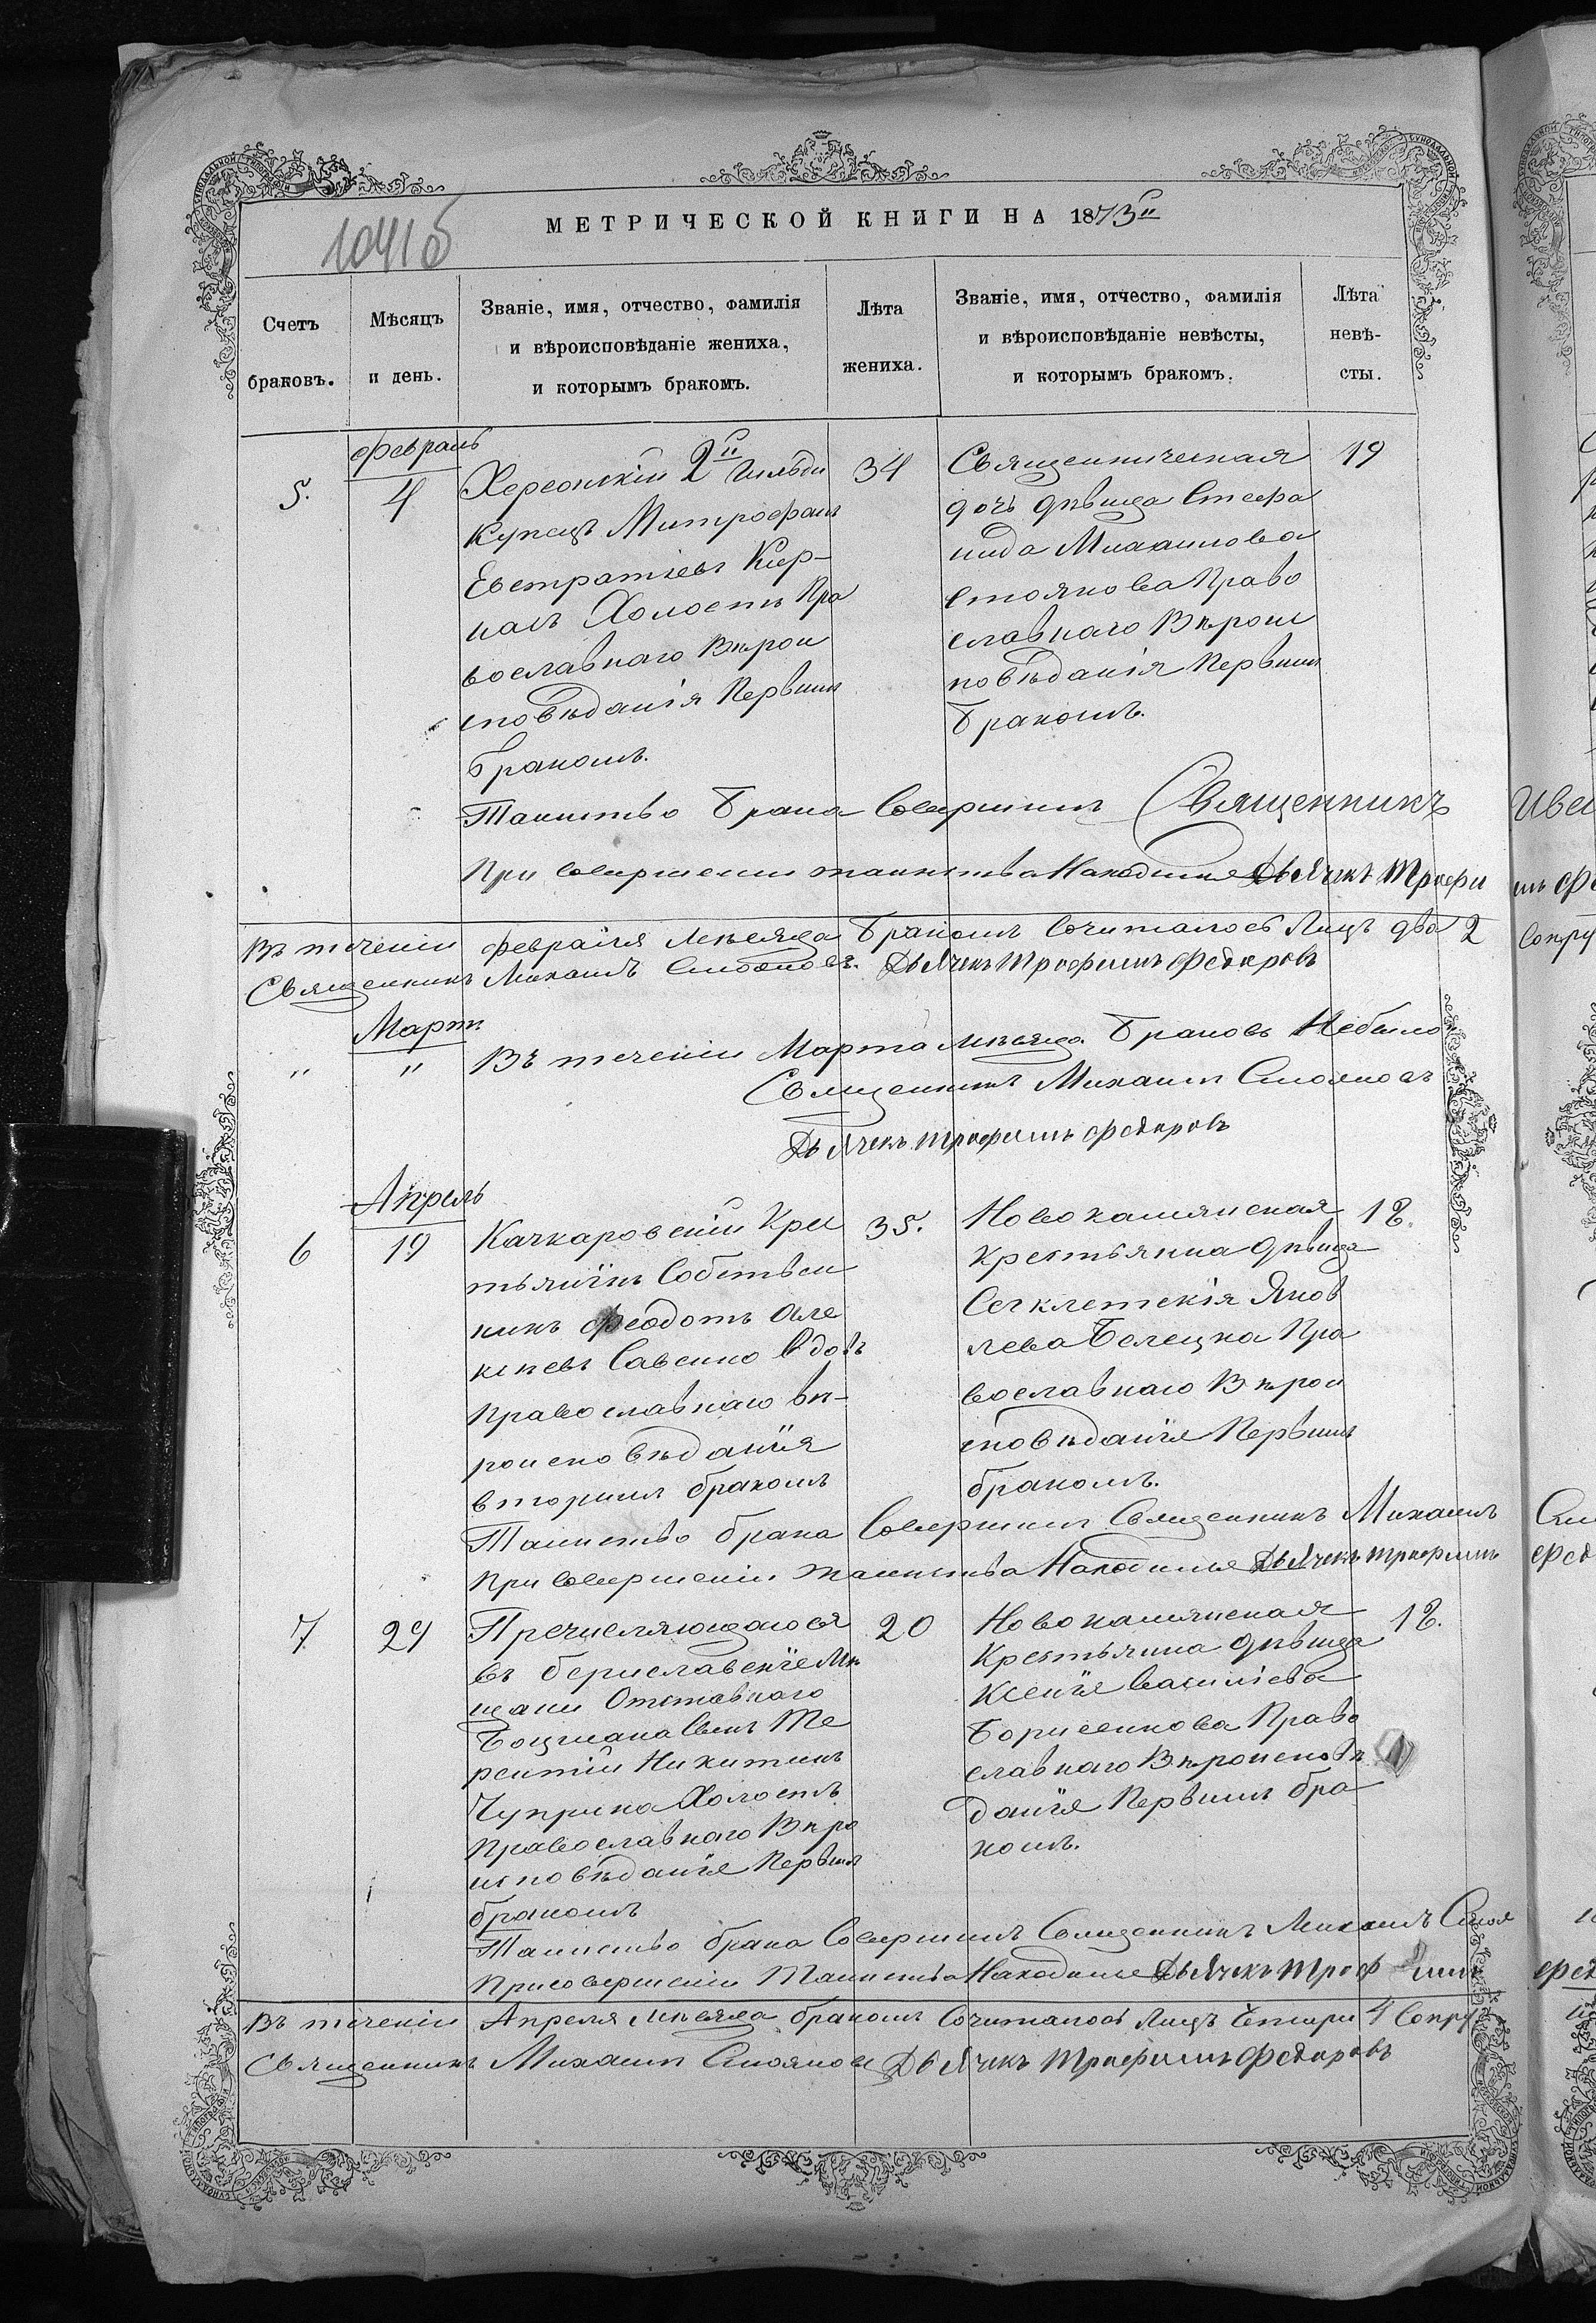 10416
МЕТРИЧЕСКОЙ КНИГИ НА 1873й
Счетъ браковъ.
Мѣсяцъ и день.
Званіе, имя, отчество, фамилія
и вѣроисповѣданіе жениха,
и которымъ бракомъ.
Лѣта
жениха.
Званіе, имя, отчество, фамилія
и вѣроисповѣданіе невѣсты,
и которымъ бракомъ.
Лѣта
невѣ-
сты.
Февраль
5.
4
Херсонскій 2й гильди
купецъ Митрофанъ
Евстратіевъ
Холостъ Пра
вославнаго Вѣрои
сповѣданія Первымъ
Бракомъ.
34
Священическая
дочь дѣвица Стефа
нида Михаилова
Стоянова Право
славнаго Вѣроис
повѣданія Первымъ
Бракомъ.
19
Таинство Брака Совершилъ Священникъ
При Совершеніи таинства Находился Дьячекъ Трофи
Въ теченіи Февраля Мѣсяца Бракомъ Сочиталось Лицъ два 2
Священникъ Михаилъ Стояновъ. Дьячекъ Трофимъ Федоровъ
Мартъ
"
"
Въ теченіи Марта мѣсяца Браковъ Небыло
Священникъ Михаилъ Стояновъ
Дьячекъ Трофимъ Федоровъ
Апрель
6
19
Качкаровскій Крес
тьянинъ Собствен
никъ Феодотъ Але
ксѣевъ Савенко Вдовъ
Православнаго вѣ-
роисповѣданія
вторымъ бракомъ
35.
Новокамянская
Крестьянка дѣвица
Сегклетскія Яков
лева Белецка Пра
вославнаго Вѣрои
сповѣданія Первымъ
бракомъ.
18.
Таинство брака Совершилъ Священникъ Михаилъ
При Совершеніи таинства Находился Дьячекъ Трофимъ
7
29
Пречисляющагося
въ бериславскіе Мѣ
щани Отставного
Боцмана Сынъ Те
рентій Никитинъ
Чуприна Холостъ
Православнаго Вѣро
исповѣданія Первымъ
бракомъ
20
Новокамянская
Крестьянка дѣвица
Ксенія Василіева
Борисенкова Право
славнаго Вѣроисповѣ
данія Первымъ бра
комъ.
18.
Таинство брака Совершилъ Священникъ Михаилъ Стоя
При совершеніи Таинства Находился Дьячекъ Трофимъ
Въ теченіи Апреля Мѣсяца бракомъ Сочиталось Лицъ Четыри 4 Сопру
Священникъ Михаилъ Стояновъ Дьячекъ Трофимъ Федоровъ